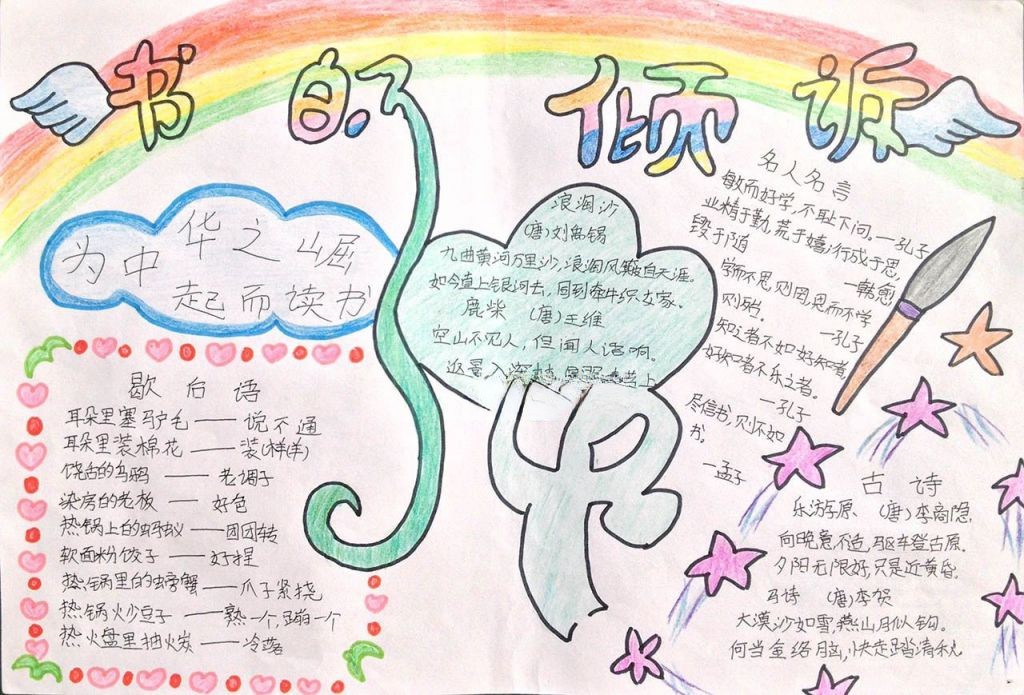 书的倾诉
为中华之崛
起而读书
歇后语
耳朵里塞驴毛——说不通
耳朵里装棉花——装(样)(羊)
饶舌的乌鸦——老调子
染房的老板——好包
热锅上的蚂蚁——团团转
软面粉饺子——好捏
热锅里的螃蟹——爪子紧挠
热锅火炒豆子——熟一个,蹦一个
热火盘里抽火炭——冷落
浪淘沙
(唐)刘禹锡
九曲黄河万里沙,浪淘风簸自天涯。
如今直上银河去,同到牵牛织女家。
鹿柴 (唐)王维
空山不见人,但闻人语响。
返景入深林
名人名言
敏而好学,不耻下问。—孔子
业精于勤,荒于嬉,行成于思,
毁于随 —韩愈
学而不思则罔,思而不学
则殆。 —孔子
知之者不如好知者
好知者不乐之者。
—孔子
尽信书,则不如
书。
—孟子
古诗
乐游原、(唐)李商隐
向晚意不适,驱车登古原。
夕阳无限好,只是近黄昏。
马诗 (唐)李贺
大漠沙如雪,燕山月似钩。
何当金络脑,快走踏清秋